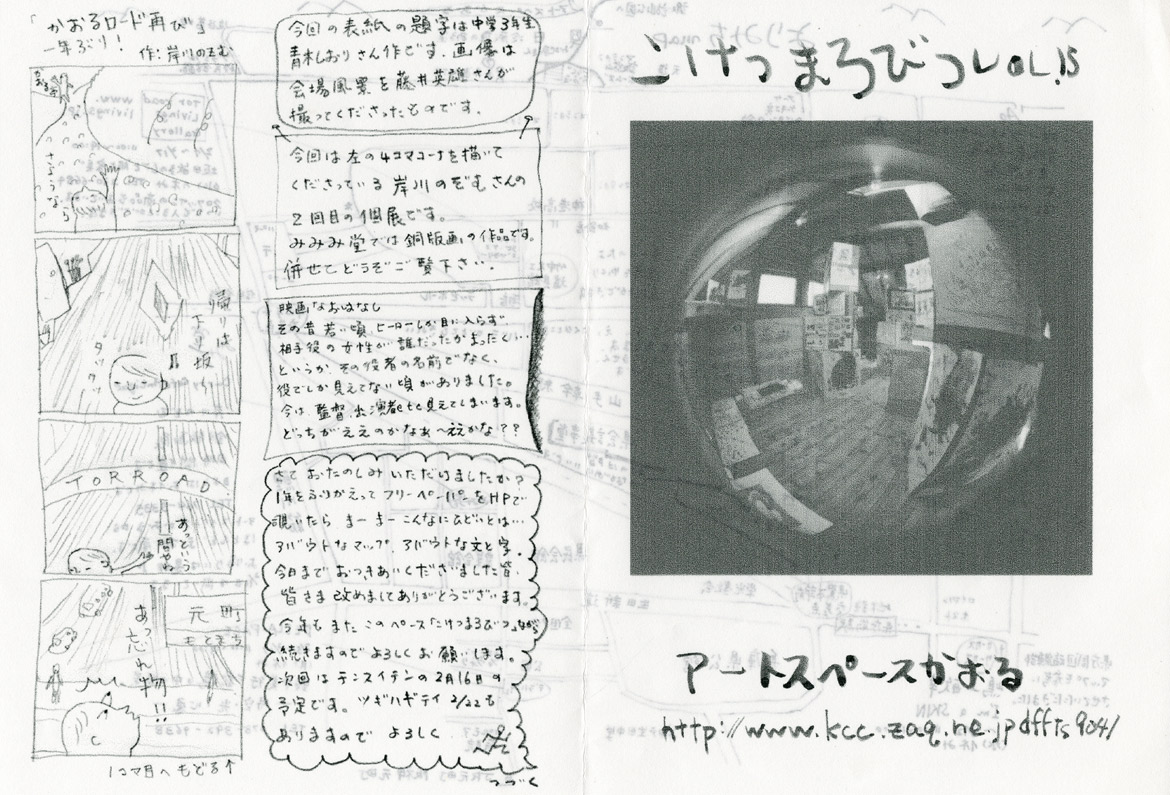 「かおるロード再び」
一年ぶり!
作:岸川のぞむ
さようなら
帰りは
下り坂
タッタッ
TORROAD
あっという
間やね
元町
もとまち
あっ忘れ物!!
1コマ目へもどる↑
今回の表紙の題字は中学3年生
青木しおりさん作です。画像は
会場風景を藤井英雄さんが
撮ってくださったものです。
今回は左の4コマコーナーを描いて
くださっている岸川のぞむさんの
2回目の個展です。
みみみ堂では銅版画の作品です。
併せてどうぞご覧下さい。
映画なおはなし
その昔若い頃ヒーローしか目に入らず
相手役の女性が誰だったかまったく…
というか、その役者の名前でなく、
役でしか見えてない頃がありました。
今は、監督、出演者etc見えてしまいます。
どっちがええのかなぁ〜ええかな??
さて おたのしみ いただけましたか?
1年をふりかえって フリーペーパーをHPで
覗いたら まーまー こんなにひどいとは…
アバウトなマップ、アバウトな文と字。
今日まで おつきあいくださいました皆、
皆さま 改めましてありがとうございます。
今年も また このペースで「こけつまろびつ」ながら
続きますので よろしくお願いします。
次回は テンスイテンの2月16日の
予定です。 ツギハギデイ 2/22も
ありますので よろしく
つづく
こけつまろびつ VOL.15
アートスペースかおる
http://www.kcc.zaq.ne.jp/dffts904/